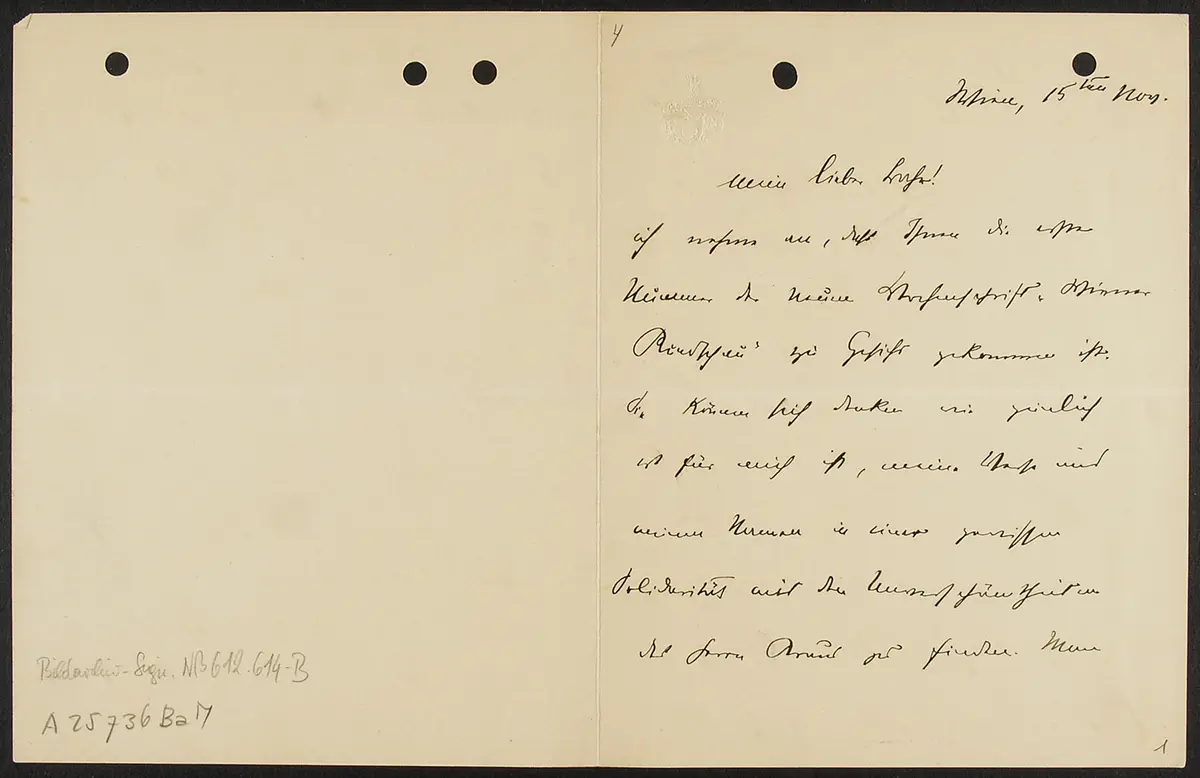 Bildarchiv-Sign. NB 612.614-B
A 25736 BaM
4
Wien, 15ten Nov.
Mein lieber Bahr!
ich nehme an, dass Ihnen die erste
Nummer der neuen Wochenschrift „Wiener
Rundschau" zu Gesicht gekommen ist.
Sie können sich denken wie peinlich
es für mich ist, meine Verse und
meinen Namen in einer gewissen
Solidarität mit den Unverschämtheiten
des Herrn Kraus zu finden. Man
1